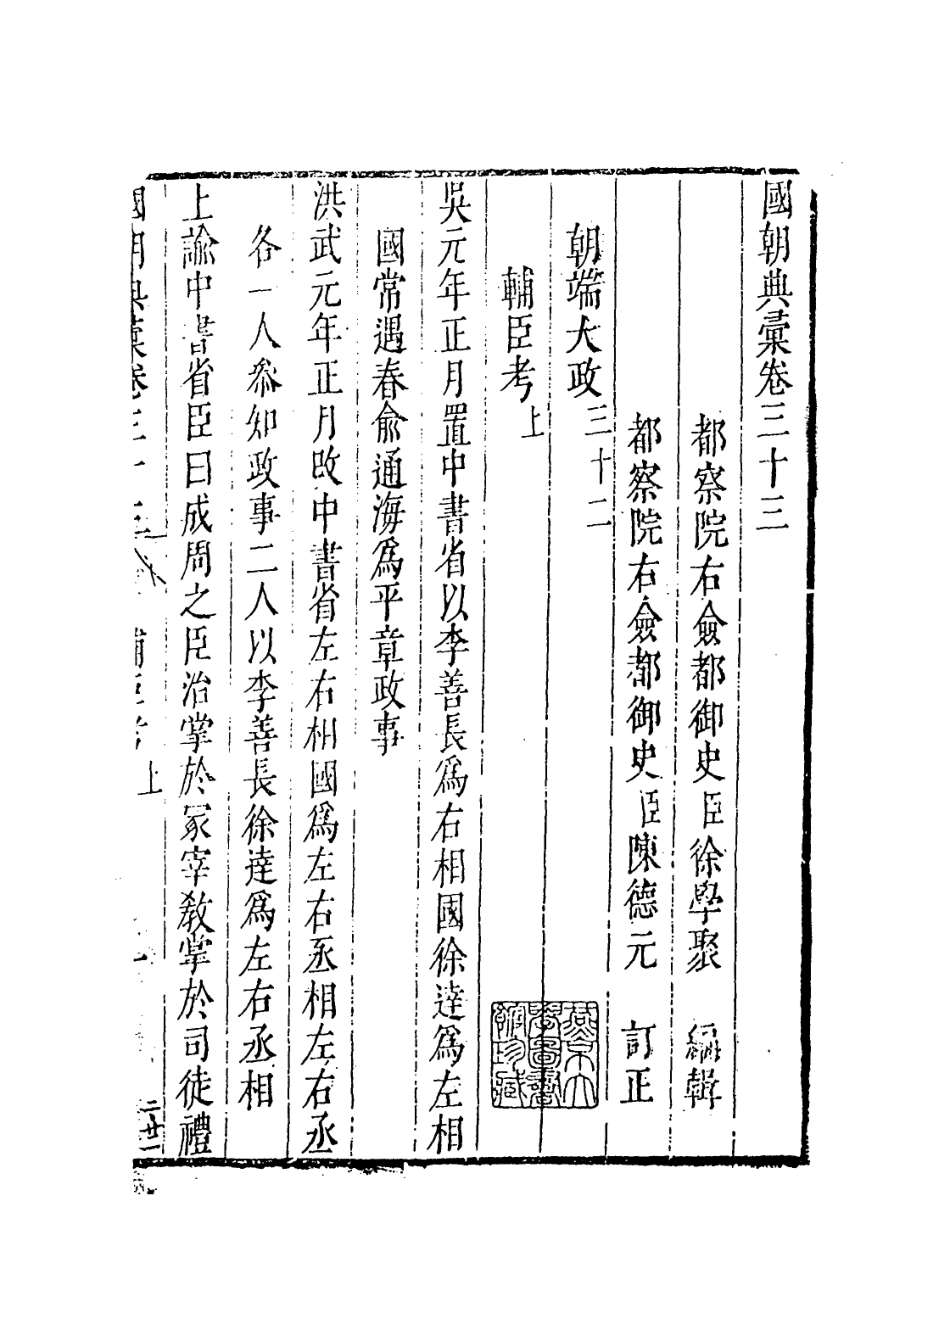 國朝典彙卷三十三
都察院右僉都御史臣徐學聚 編輯
都察院右僉都御史臣陳德元 訂正
朝端大政三十二
輔臣考上
吳元年正月置中書省以李善長爲右相國徐達爲左相
國常遇春俞通海爲平章政事
洪武元年正月改中書省左右相國爲左右丞相左右丞
各一人叅知政事二人以李善長徐達爲左右丞相
上諭中書省臣曰成周之臣治掌於冢宰教掌於司徒禮
國朝典彙卷三十三 輔臣考上
燕京大
學圖書
館珍藏